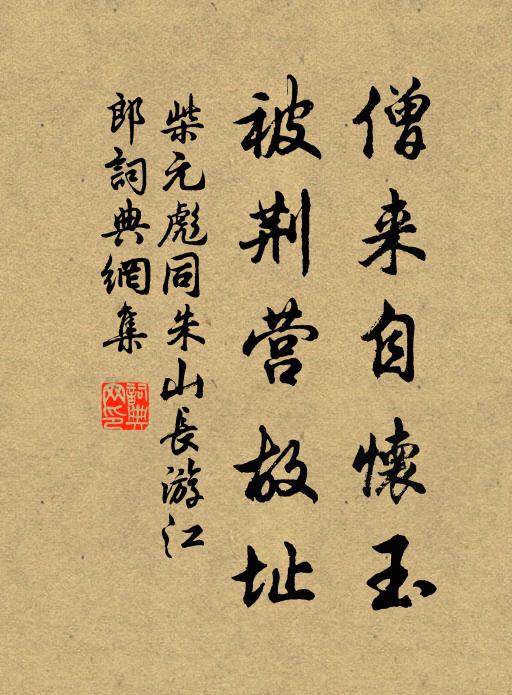 僧来自懷玉
被荆营故址
柴元彪同朱山長游江
郎詞典網集
詞典網印